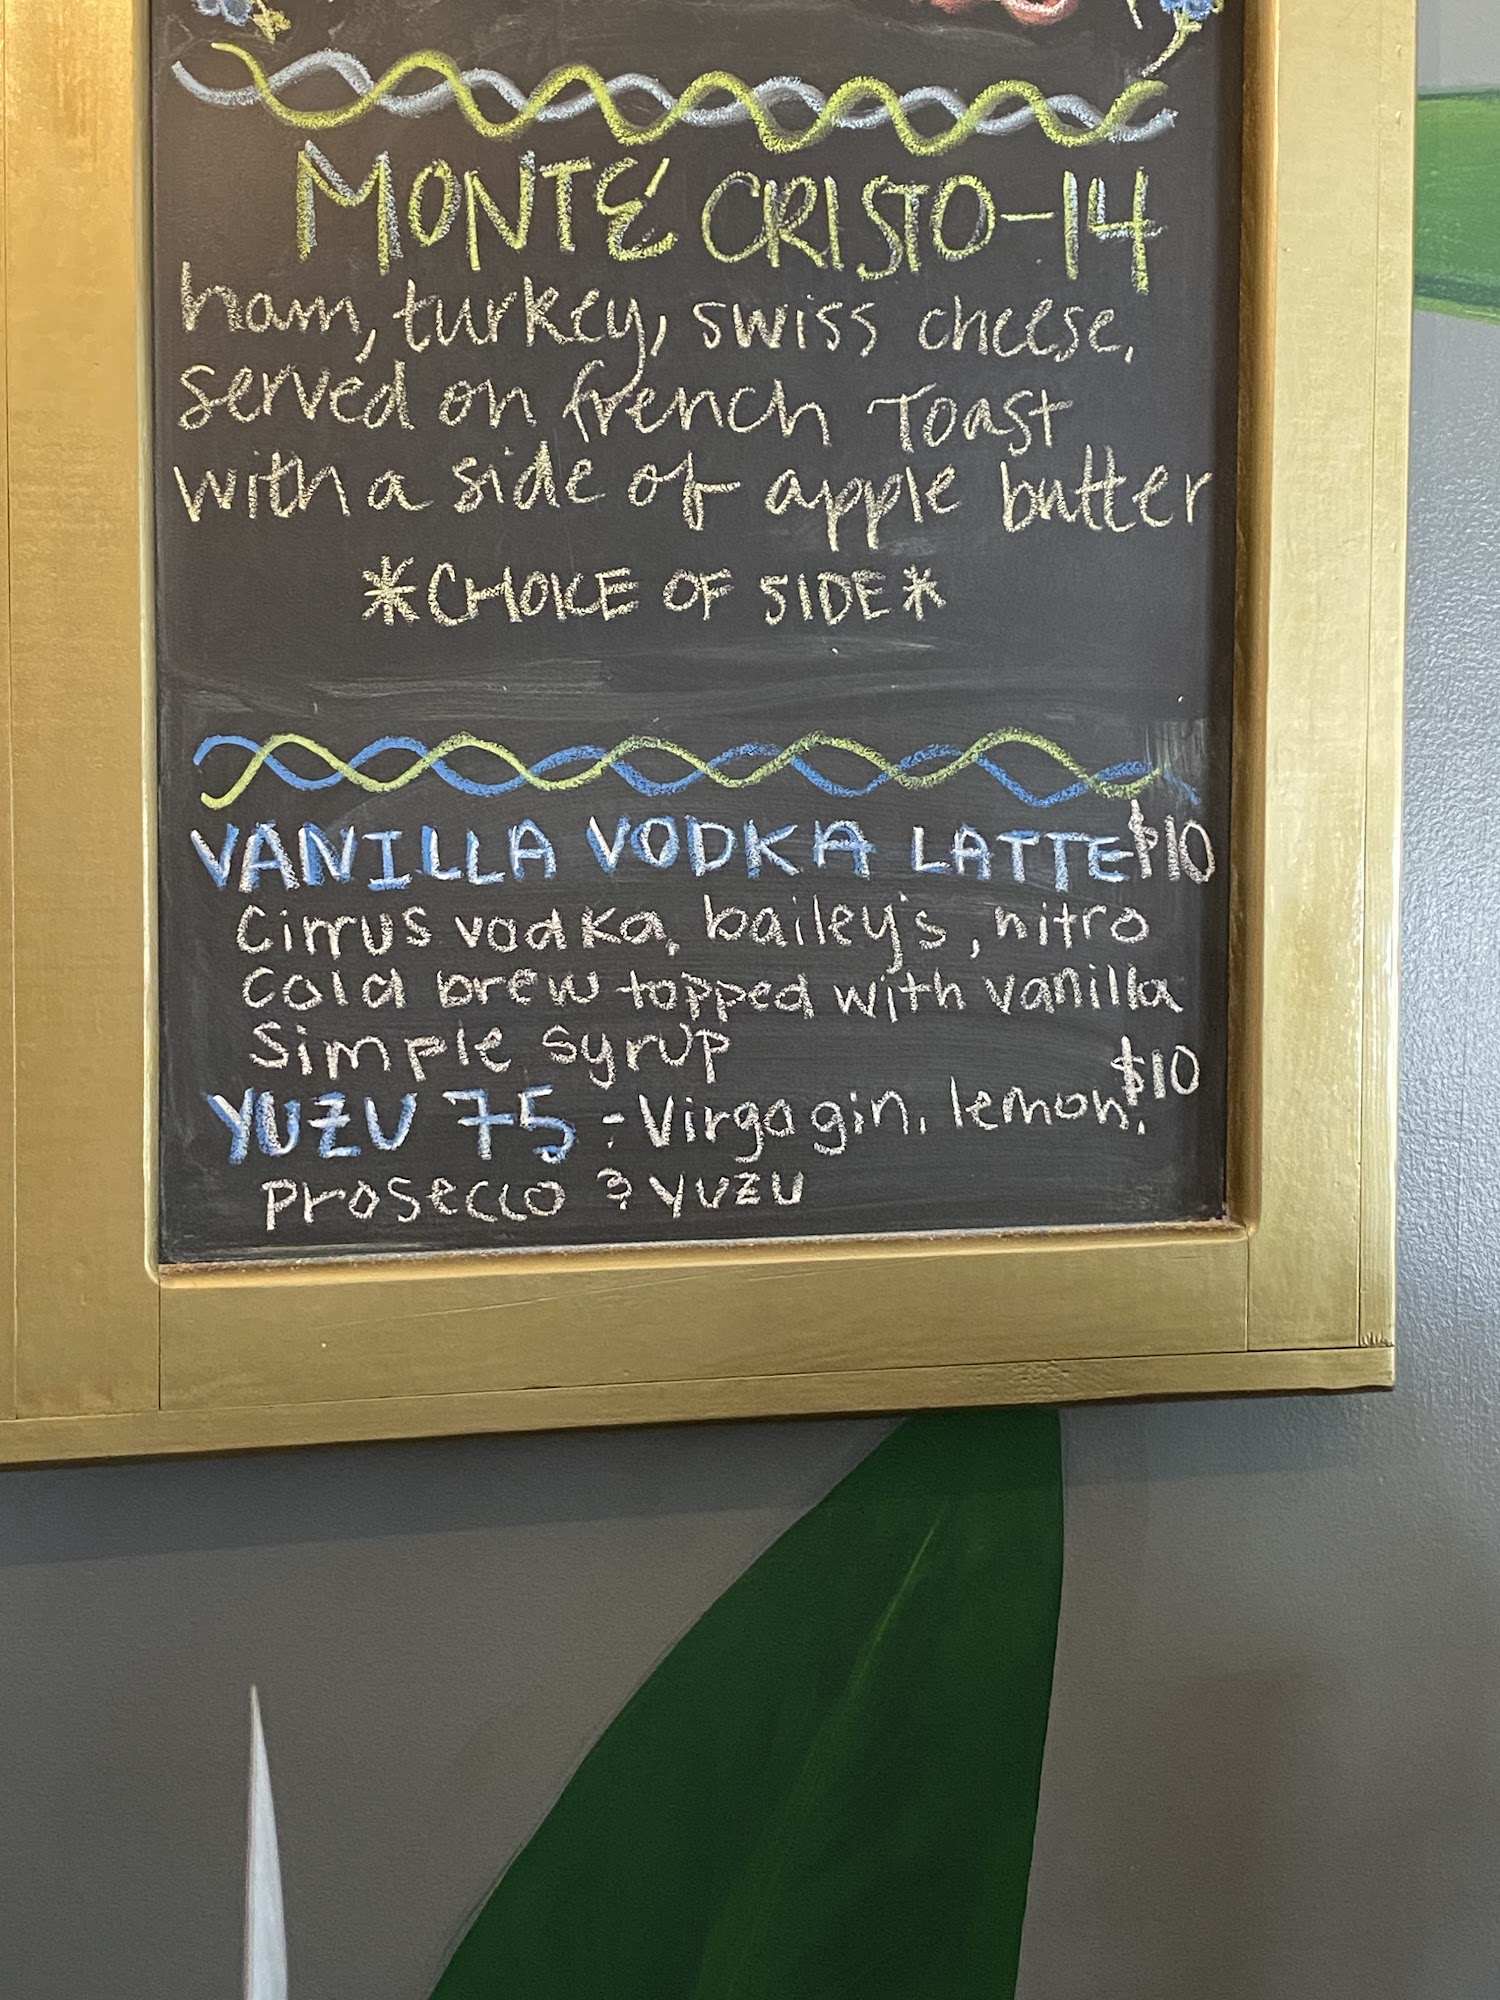 MONTE CRISTO-14
ham, turkey, swiss cheese,
served on french Toast
with a side of apple butter
*CHOICE OF SIDE*
VANILLA VODKA LATTE $10
Cirrus vodka, bailey's, nitro
Cold brew topped with vanilla
Simple syrup
$10
YUZU 75 :- Virgo gin, lemon,
prosecco & yuzu